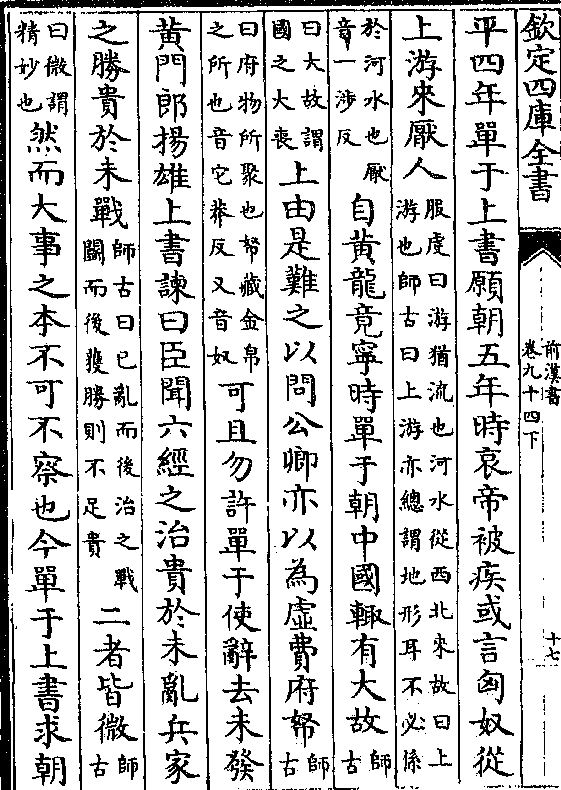 欽定四庫全書
前漢書
卷九十四下
十七
平四年單于上書願朝五年時哀帝被疾或言匈奴從
上游來厭人服虔曰游猶流也河水從西北來故曰上游也師古曰上游亦總謂地形耳不必係
於河水也厭音一涉反自黄龍竟寧時單于朝中國輒有大故師古
曰大故謂國之大喪上由是難之以問公卿亦以為虛費府帑師古
曰府物所聚也帑藏金帛之所也音它莽反又音奴可且勿許單于使辭去未發
黄門郎揚雄上書諫曰臣聞六經之治貴於未亂兵家
之勝貴於未戰師古曰已亂而後治之戰鬭而後獲勝則不足貴二者皆微師古
曰微謂精妙也然而大事之本不可不察也今單于上書求朝